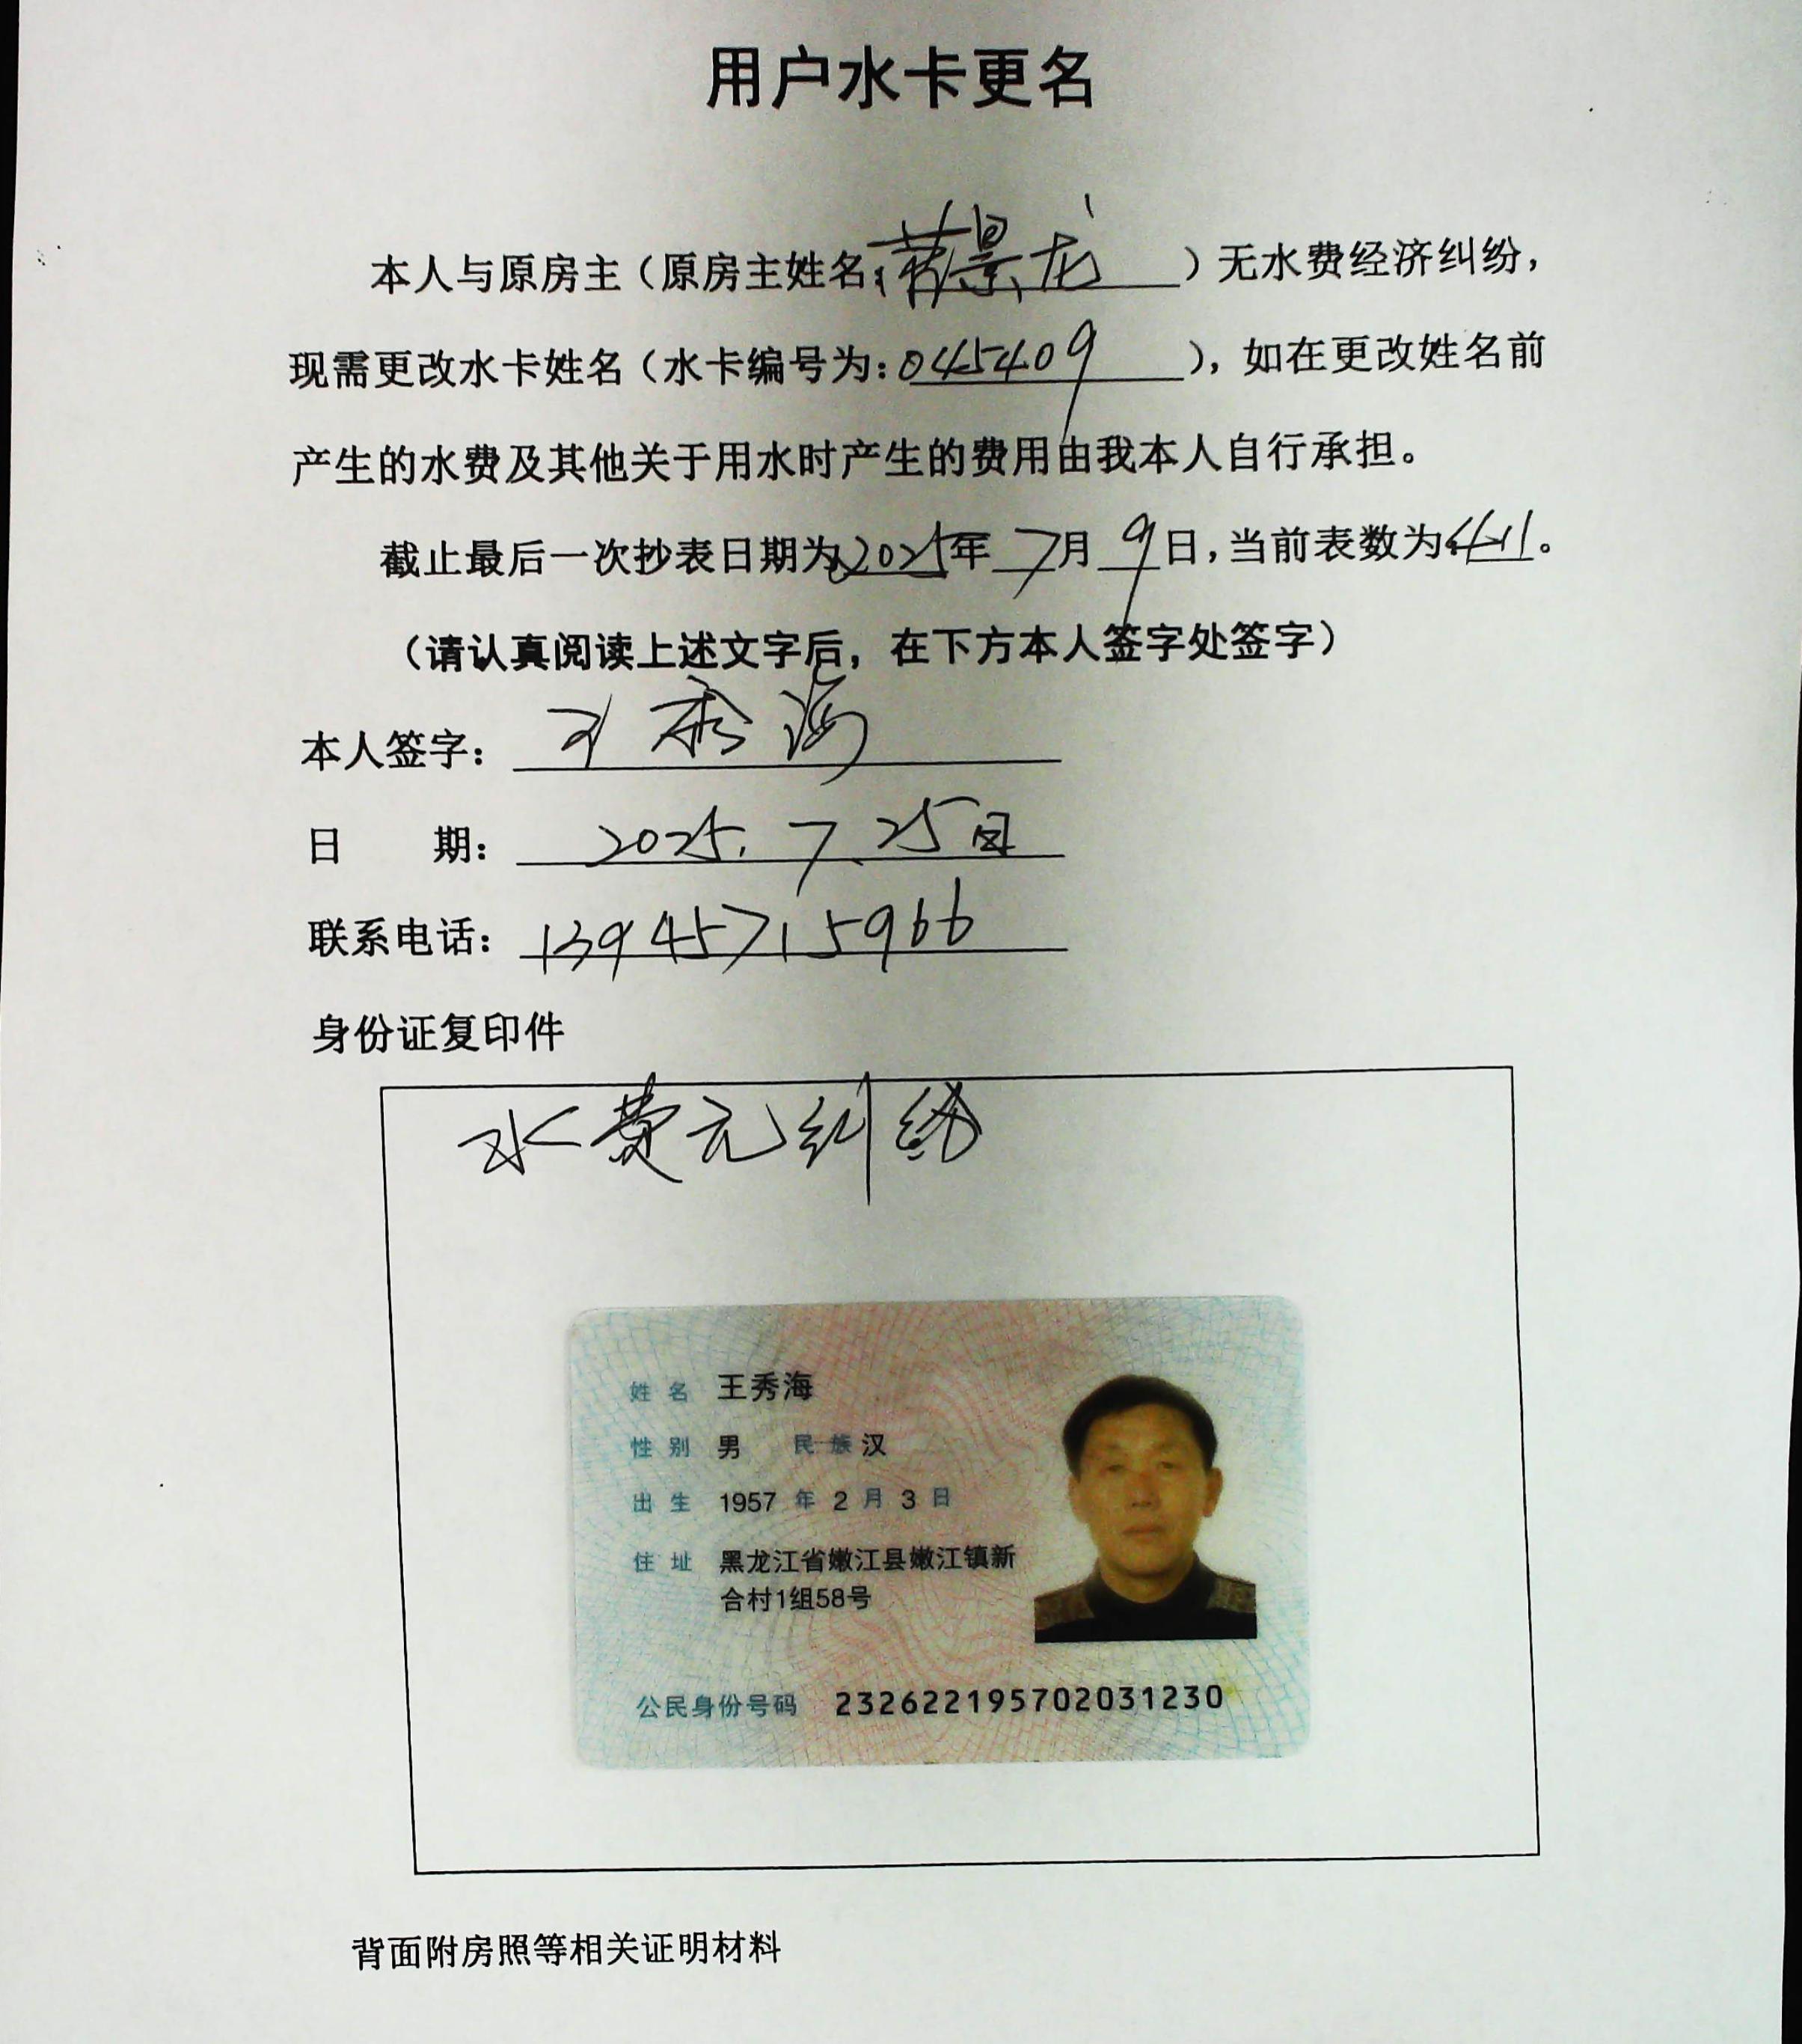 用户水卡更名
本人与原房主（原房主姓名：蒋景龙）无水费经济纠纷，
现需更改水卡姓名（水卡编号为：045409），如在更改姓名前
产生的水费及其他关于用水时产生的费用由我本人自行承担。
截止最后一次抄表日期为2025年7月9日，当前表数为。
（请认真阅读上述文字后，在下方本人签字处签字）
本人签字：王秀海
日 期：2025.7.25日
联系电话：13945715966
身份证复印件
水费无纠纷
姓名 王秀海
性别 男 民族 汉
出生 1957 年 2 月 3 日
住址 黑龙江省嫩江县嫩江镇新
合村1组58号
公民身份号码 232622195702031230
背面附房照等相关证明材料